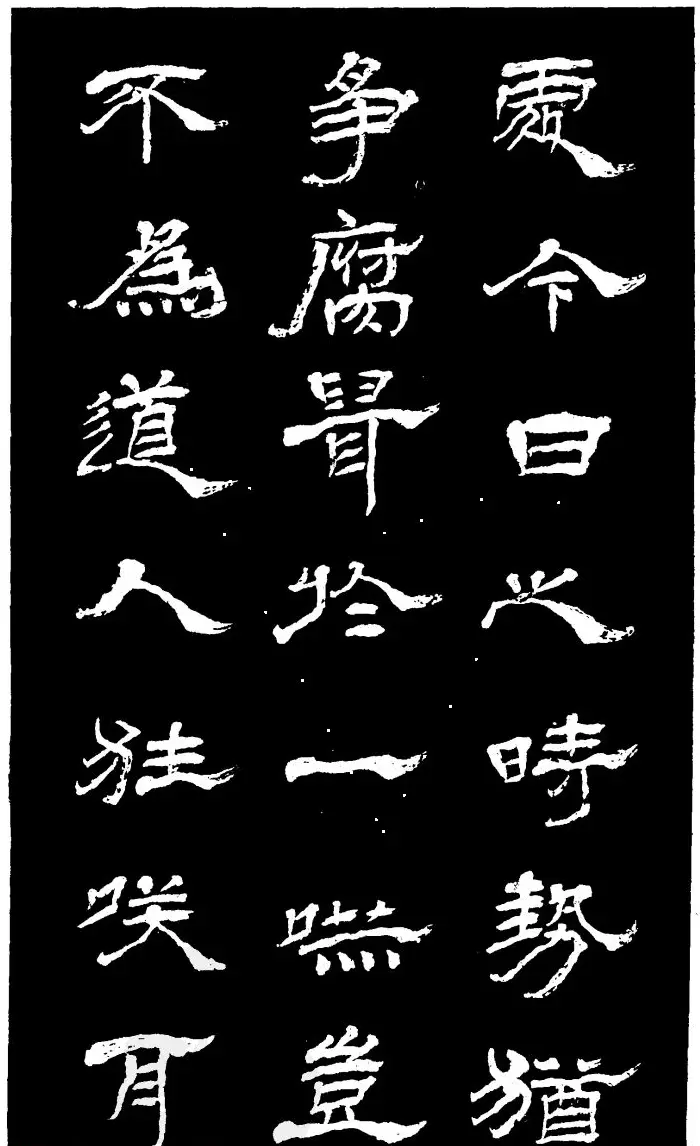 處今日之時勢猶
爭腐鼠於一嚇豈
不爲道人狂咲耳